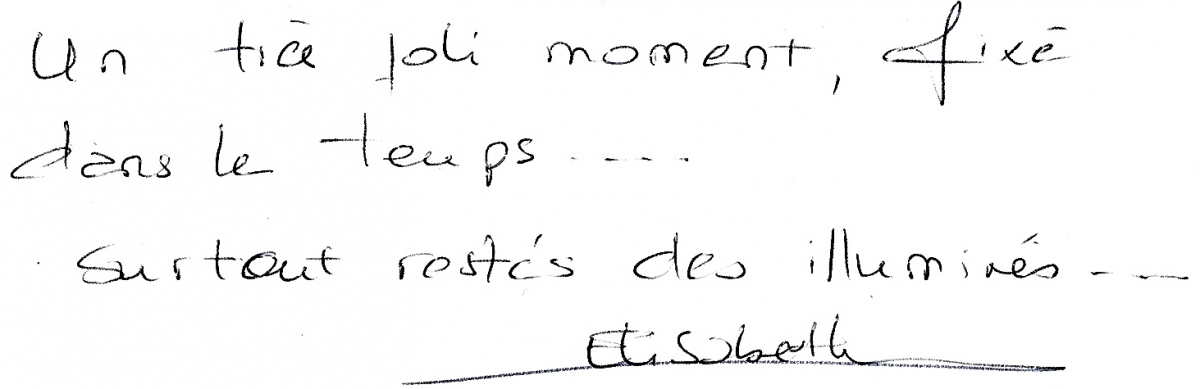 Un très joli moment, fixé
dans le temps.....
Surtout restés des illuminés....
Elisabeth